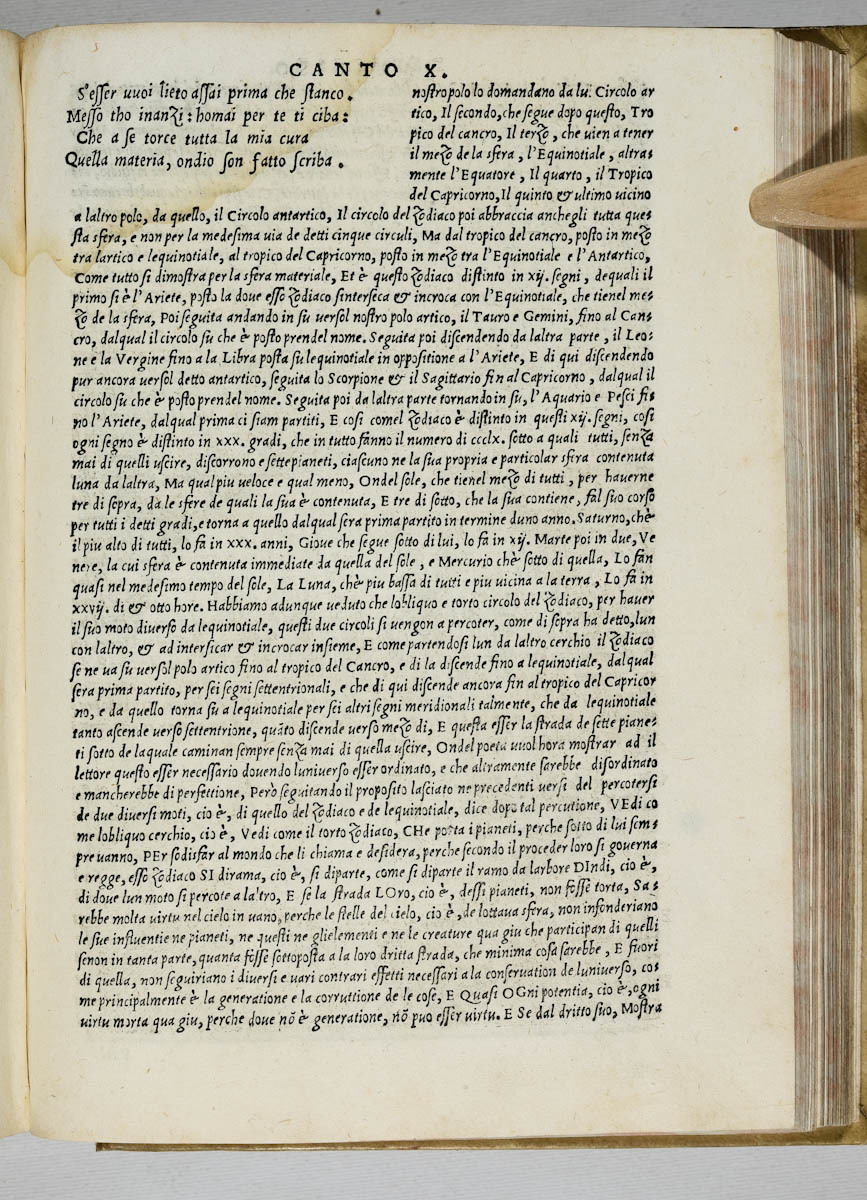 CANTO X.
S'esser uuoi lieto assai prima che stanco.
Messo tho inanzi: homai per te ti ciba:
Che a se torce tutta la mia cura
Quella materia, ondio son fatto scriba.
nostro polo lo domandano da lui Circolo ar
tico, Il secondo, che segue dopo questo, Tro
pico del cancro, Il terzo, che uien a tener
il mezo de la sfera, l'Equinotiale, altra=
mente l'Equatore, Il quarto, il Tropico
del Capricorno, Il quinto & ultimo uicino
a laltro polo, da quello, il Circolo antartico, Il circolo del Zodiaco poi abbraccia anchegli tutta que
sta sfera, e non per la medesima uia de detti cinque circuli, Ma dal tropico del cancro, posto in mezo
tra lartico e lequinotiale, al tropico del Capricorno, posto in mezo tra l'Equinotiale e l'Antartico,
Come tutto si dimostra per la sfera materiale, Et è questo Zodiaco distinto in xij. segni, dequali il
primo si è l'Ariete, posto la doue esso Zodiaco sinterseca & incroca con l'Equinotiale, che tienel me=
zo de la sfera, Poi seguita andando in su uersol nostro polo artico, il Tauro e Gemini, fino al Can=
cro, dalqual il circolo su che è posto prendel nome. Seguita poi discendendo da laltra parte, il Leo=
ne e la Vergine fino a la Libra posta su lequinotiale in oppositione a l'Ariete, E di qui discendendo
pur ancora uersol detto antartico, seguita lo Scorpione & il Sagittario fin al Capricorno, dalqual il
circolo su che è posto prendel nome. Seguita poi da laltra parte tornando in su, l'Aquario e Pesci fi=
no l'Ariete, dalqual prima ci siam partiti, E cosi comel Zodiaco è distinto in questi xij. segni, cosi
ogni segno è distinto in xxx. gradi, che in tutto fanno il numero di ccclx. sotto a quali tutti, senza
mai di quelli uscire, discorrono e sette pianeti, ciascuno ne la sua propria e particolar sfera contenuta
luna da laltra, Ma qual piu ueloce e qual meno, Ondel sole, che tienel mezo di tutti, per hauerne
tre di sopra, da le sfere de quali la sua è contenuta, E tre di sotto, che la sua contiene, fal suo corso
per tutti i detti gradi, e torna a quello dalqual sera prima partito in termine duno anno. Saturno, chè
il piu alto di tutti, lo fa in xxx. anni, Gioue che segue sotto di lui, lo fa in xij. Marte poi in due, Ve
nere, la cui sfera è contenuta immediate da quella del sole, e Mercurio chè sotto di quella, Lo fan
quasi nel medesimo tempo del sole, La Luna, chè piu bassa di tutti e piu uicina a la terra, Lo fa in
xxvij. di & otto hore. Habbiamo adunque ueduto che lobliquo e torto circolo del Zodiaco, per hauer
il suo moto diuerso da lequinotiale, questi due circoli si uengon a percoter, come di sopra ha detto, lun
con laltro, & ad intersicar & incrocar insieme, E come partendosi lun da laltro cerchio il Zodiaco
se ne ua su uersol polo artico fino al tropico del Cancro, e di la discende fino a lequinotiale, dalqual
sera prima partito, per sei segni settentrionali, e che di qui discende ancora fin al tropico del Capricor
no, e da quello torna su a lequinotiale per sei altri segni meridionali talmente, che da lequinotiale
tanto ascende uerso settentrione, quāto discende uerso mezo di, E questa esser la strada de sette piane=
ti sotto de laquale caminan sempre senza mai di quella uscire, Ondel poeta uuol hora mostrar ad il
lettore questo esser necessario douendo luniuerso esser ordinato, e che altramente sarebbe disordinato
e mancherebbe di perfettione, Però seguitando il proposito lasciato ne precedenti uersi del percotersi
de due diuersi moti, cio è, di quello del Zodiaco e de lequinotiale, dice dopo tal percutione, VEdi co
me lobliquo cerchio, cio è, Vedi come il torto Zodiaco, CHe porta i pianeti, perche sotto di lui sem=
pre uanno, PEr sodisfar al mondo che li chiama e desidera, perche secondo il proceder loro si gouerna
e regge, esso Zodiaco SI dirama, cio è, si diparte, come si diparte il ramo da larbore DIndi, cio è,
di doue lun moto si percote a la'tro, E se la strada LOro, cio è, dessi pianeti, non fosse torta, Sa=
rebbe molta uirtu nel cielo in uano, perche le stelle del cielo, cio è, de lottaua sfera, non infonderiano
le sue influentie ne pianeti, ne questi ne glielementi e ne le creature qua giu che participan di quelli
senon in tanta parte, quanta fosse sottoposta a la loro dritta strada, che minima cosa sarebbe, E fuori
di quella, non seguiriano i diuersi e uari contrari effetti necessari a la conseruation de luniuerso, co=
me principalmente è la generatione e la corruttione de le cose, E QuasI OGni potentia, cio è, ogni
uirtu morta qua giu, perche doue nō è generatione, nō puo esser uirtu. E Se dal dritto suo, Mostra